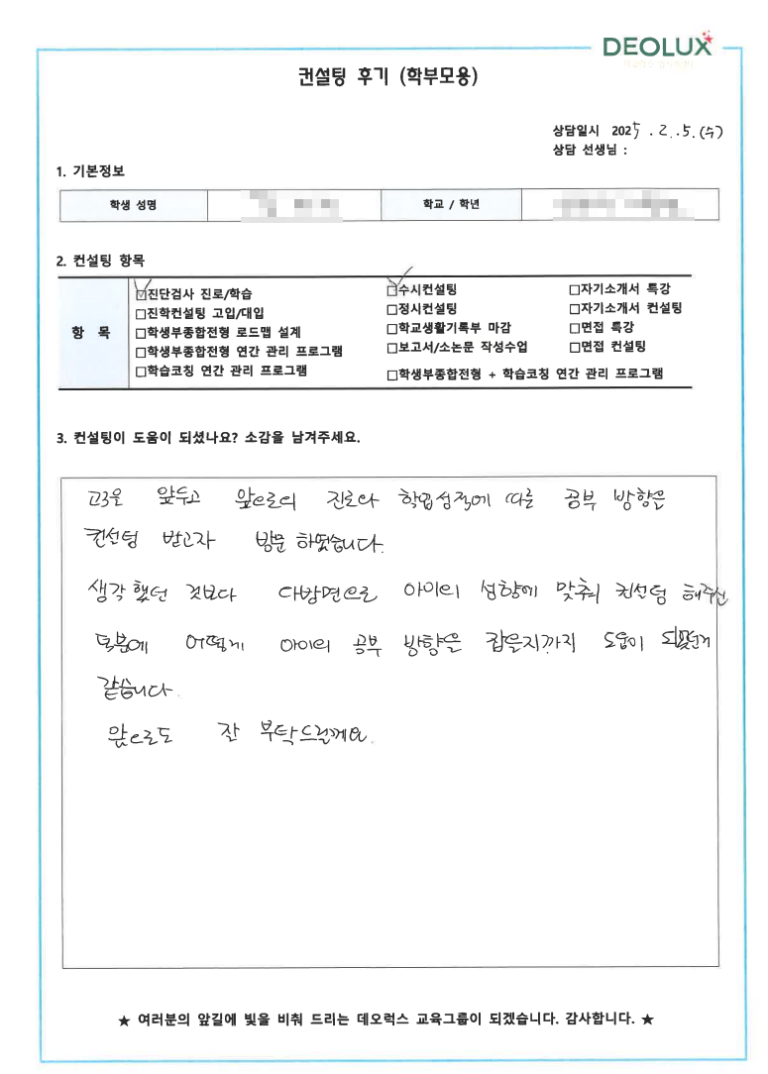 DEOLUX
컨설팅 후기 (학부모용)
상담일시 2025.2.5.(수)
상담 선생님 :
1. 기본정보
학생 성명 학교 / 학년
2. 컨설팅 항목
항 목
☑진단검사 진로/학습 ☑수시컨설팅 □자기소개서 특강
□진학컨설팅 고입/대입 □정시컨설팅 □자기소개서 컨설팅
□학생부종합전형 로드맵 설계 □학교생활기록부 마감 □면접 특강
□학생부종합전형 연간 관리 프로그램 □보고서/소논문 작성수업 □면접 컨설팅
□학습코칭 연간 관리 프로그램 □학생부종합전형 + 학습코칭 연간 관리 프로그램
3. 컨설팅이 도움이 되셨나요? 소감을 남겨주세요.
고3을 앞두고 앞으로의 진로와 학업성적에 따른 공부 방향은
컨설팅 받고자 방문 하였습니다.
생각했던 것보다 다방면으로 아이의 성향에 맞춰 컨설팅 해주신
덕분에 어떻게 아이의 공부 방향을 잡을지까지 도움이 되었던거
같습니다.
앞으로도 잘 부탁드릴께요.
★ 여러분의 앞길에 빛을 비춰 드리는 데오럭스 교육그룹이 되겠습니다. 감사합니다. ★